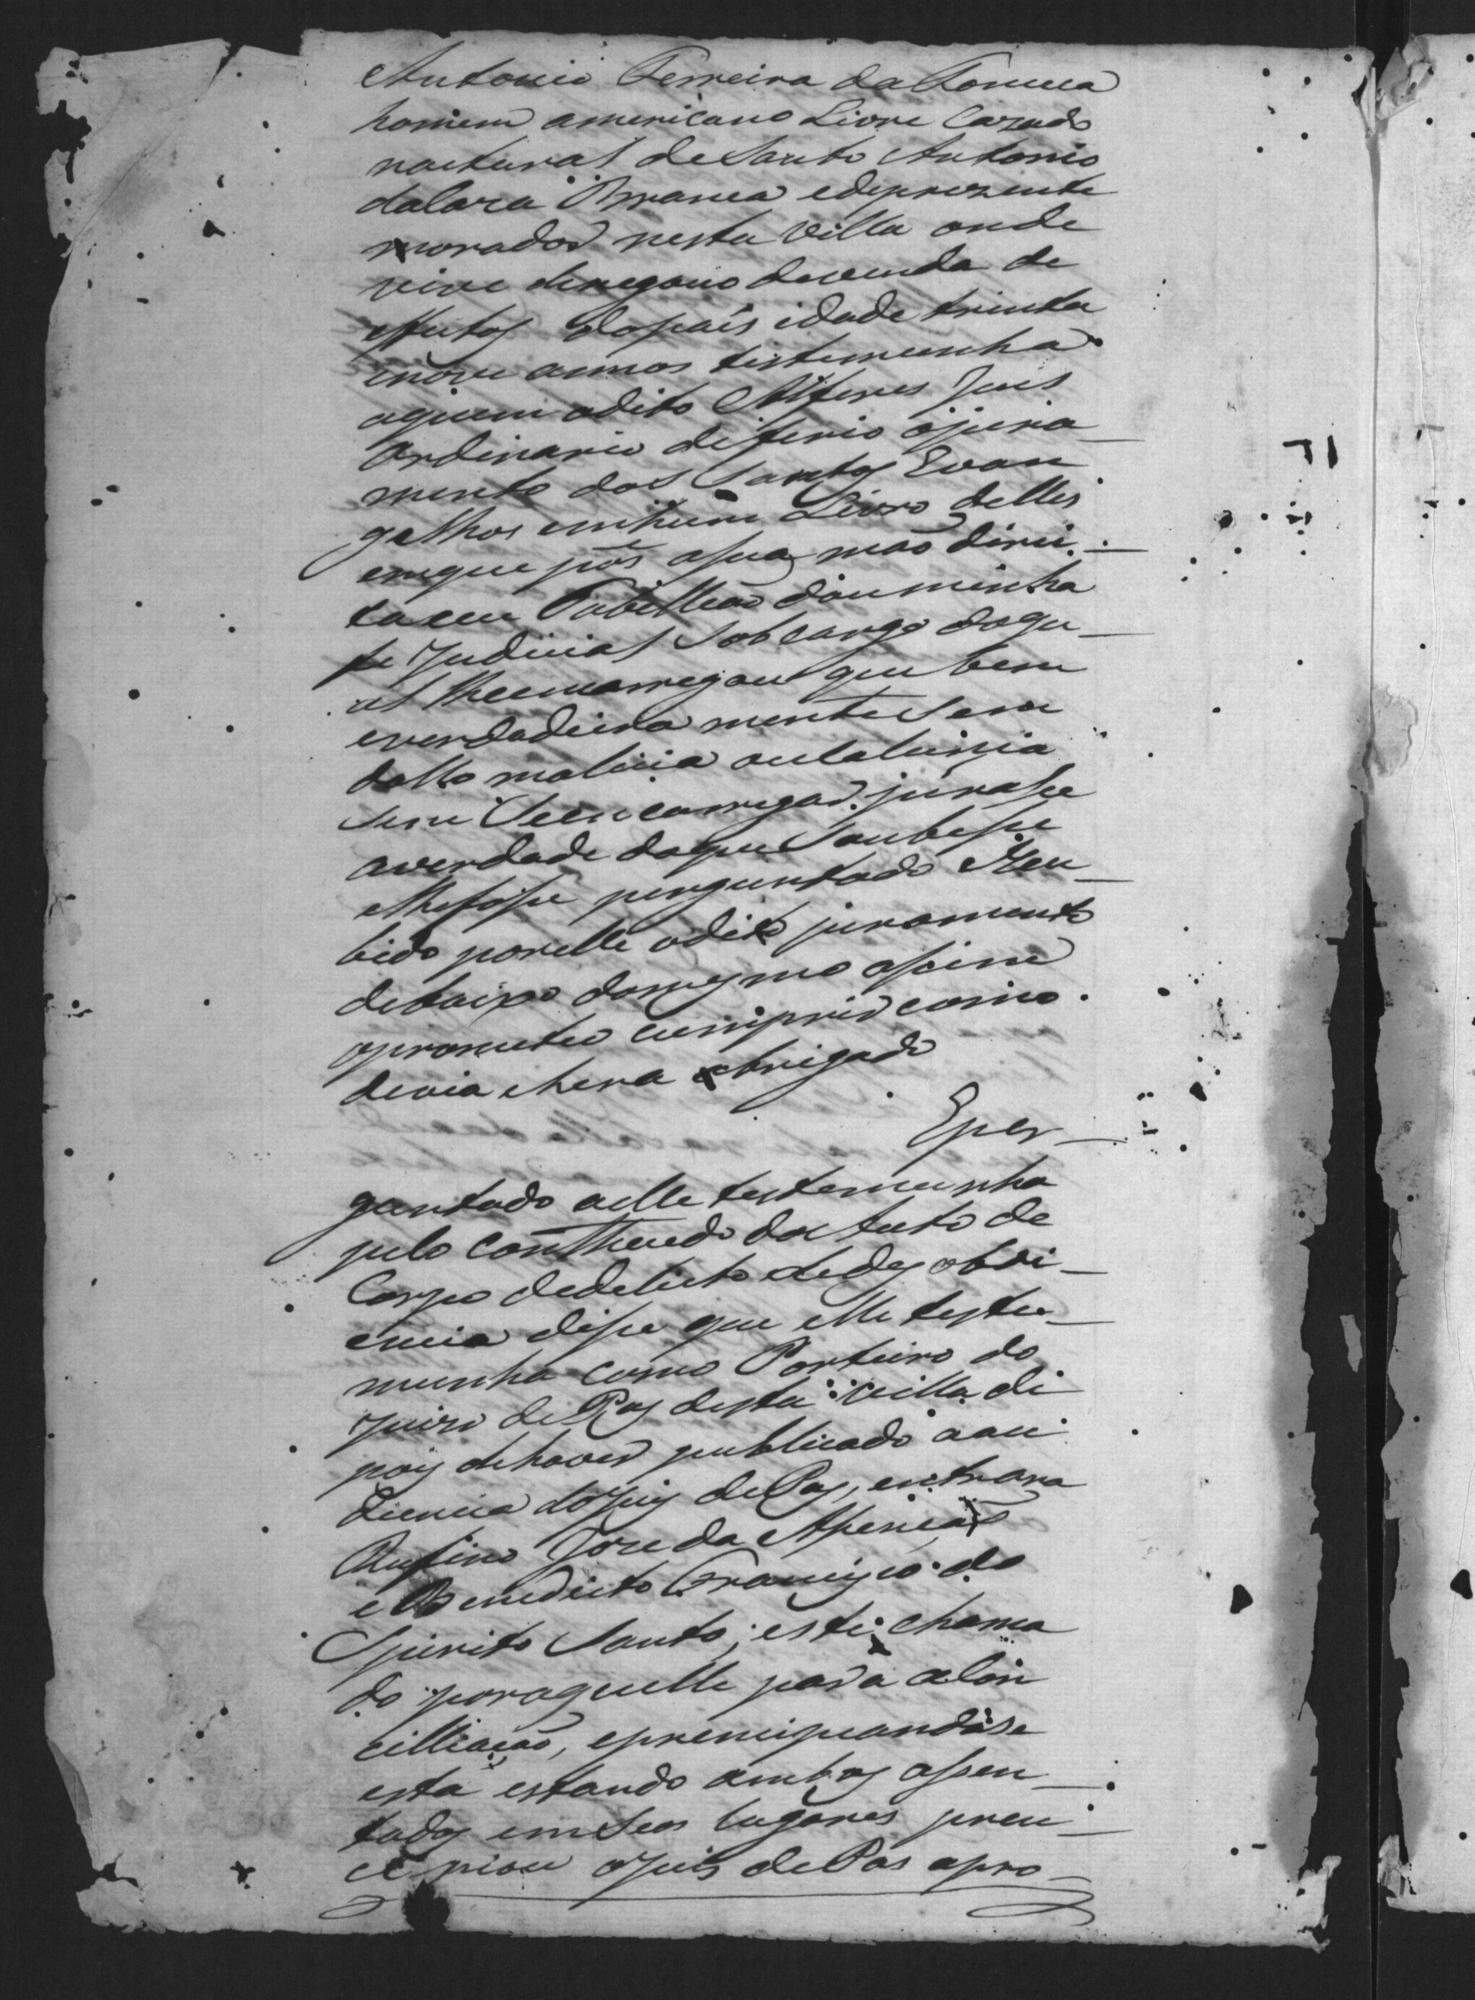 Antonio Ferreira da Fonceca
homem americano Livre Cazado
natural de Santo Antonio
da Cara Branca e de prezente
morador nesta Villa onde
vive de negocio de venda de
effeitos do pais idade trinta
e nove annos testemunha
aquem odito Alferes Juis
Ordinario diferio ojura_
mento dos Santos Evan
gelhos em hum Livro delles
emque pôs asua mão direi_
ta eeu Tabelleão dou minha
fe Judicial Sob cargo doqu_
al lhe emcarregou que bem
everdadeira mente Sem
dollo malicia ou Calunia
Sem Se encarregar jurasse
averdade doque Soubesse
elhefosse perguntado eRece_
bido porelle odito juramento
debaixo do mesmo assim
oprometeu cumprir como
devia ehera obrigado
Eper_
guntado aelle testemunha
pelo conthehudo do Auto de
Corpo dedelicto dedesobedi_
encia disse que elle teste_
munha como Porteiro do
Juizo de Pas desta villa de
pois dehaver publicado aau
diencia do Juis de Pas, entrara
Rufino Jose da
e Benedicto Francisco do
Spirito Santo; este chama
do poraquelle para aCon
cilliação, eprencipiandose
esta estando ambos assen_
tados em Seos lugares pren_
cipiou oJuis de Pas apro_